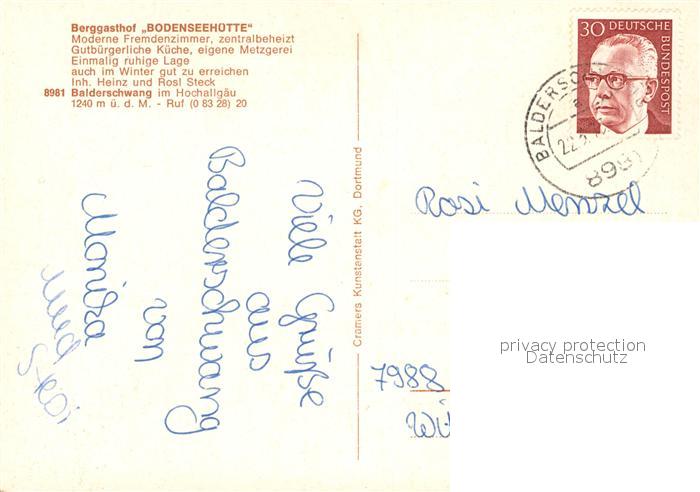 Berggasthof „BODENSEEHÜTTE"
Moderne Fremdenzimmer, zentralbeheizt
Gutbürgerliche Küche, eigene Metzgerei
Einmalig ruhige Lage
auch im Winter gut zu erreichen
Inh. Heinz und Rosl Steck
8981 Balderschwang im Hochallgäu
1240 m ü. d. M. - Ruf (0 83 28) 20
Viele Grüße
aus
Balderschwang
von
Monika
und
Cramers Kunstanstalt KG, Dortmund
30 DEUTSCHE
BUNDESPOST
8981
Rosi Menzel
7988
privacy protection
Datenschutz